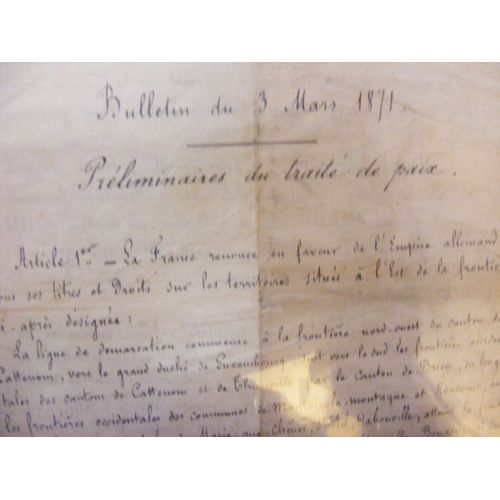 Bulletin du 3 Mars 1871.
Préliminaires du traité de paix.
Article 1er. — La France renonce en faveur de l'Empire allemand
ous ses titres et Droits sur les territoires situés à l'Est de la frontiè
i-après désignée :
La ligne de demarcation commence à la frontière nord-ouest du canton de
Cattenom, vers le grand duché de Luxembourg, suit vers le sud les frontières occiden
tales des cantons de Cattenom et de Thionville, par le Canton de Briey, en long
les frontières occidentales des communes de Montois-la-montagne et Roncourt
de Marie aux Chênes, St Ail, Habonville, atteint la